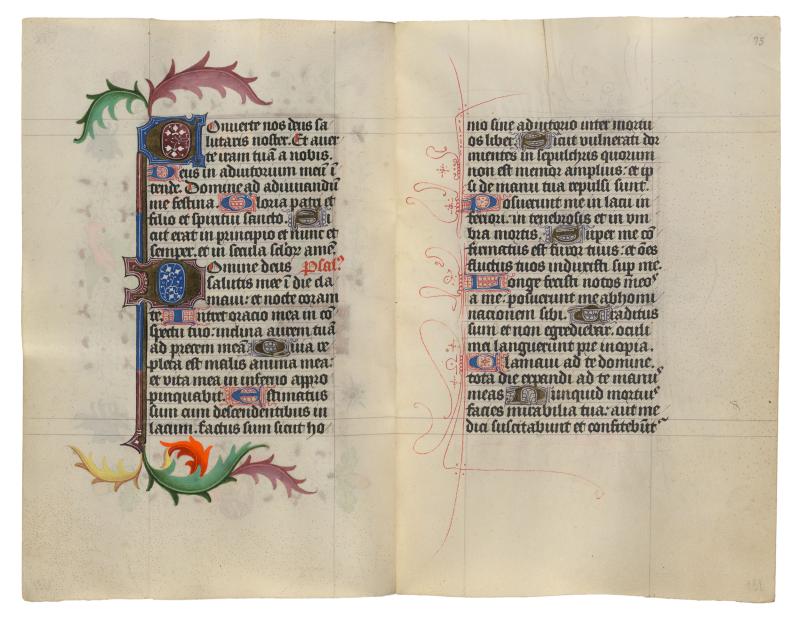 Conuerte nos deus sa
lutaris noster. Et auer
te iram tuā a nobis.
Deus in adiutorium meū ī
tende. Domine ad adiuuandū
me festina. Gloria patri et
filio et spiritui sancto. Si
cut erat in principio et nunc et
semper. et in secula sclor amē.
Domine deus Psal'
salutis mee ī die cla
maui: et nocte coram
te. Intret oracio mea in cō
spectu tuo: inclina aurem tuā
ad precem meā. Quia re
pleta est malis anima mea:
et vita mea in inferno appro
pinquabit. Estimatus
sum cum descendentibus in
lacum. factus sum sicut ho
75
mo sine adiutorio inter mortu
os liber. Sicut vulnerati dor
mientes in sepulchris quorum
non est memor amplius: et ip
si de manu tua repulsi sunt.
Posuerunt me in lacu in
feriori: in tenebrosis et in vm
bra mortis. Super me cō
firmatus est furor tuus: et ōēs
fluctus tuos induxisti sup me.
Longe fecisti notos meos
a me: posuerunt me abhomi
nacionem sibi. Traditus
sum et non egrediebar. oculi
mei languerunt pre inopia.
Clamaui ad te domine.
tota die expandi ad te manus
meas Nunquid mortuis
facies mirabilia tua: aut me
dici suscitabunt et confitebūt